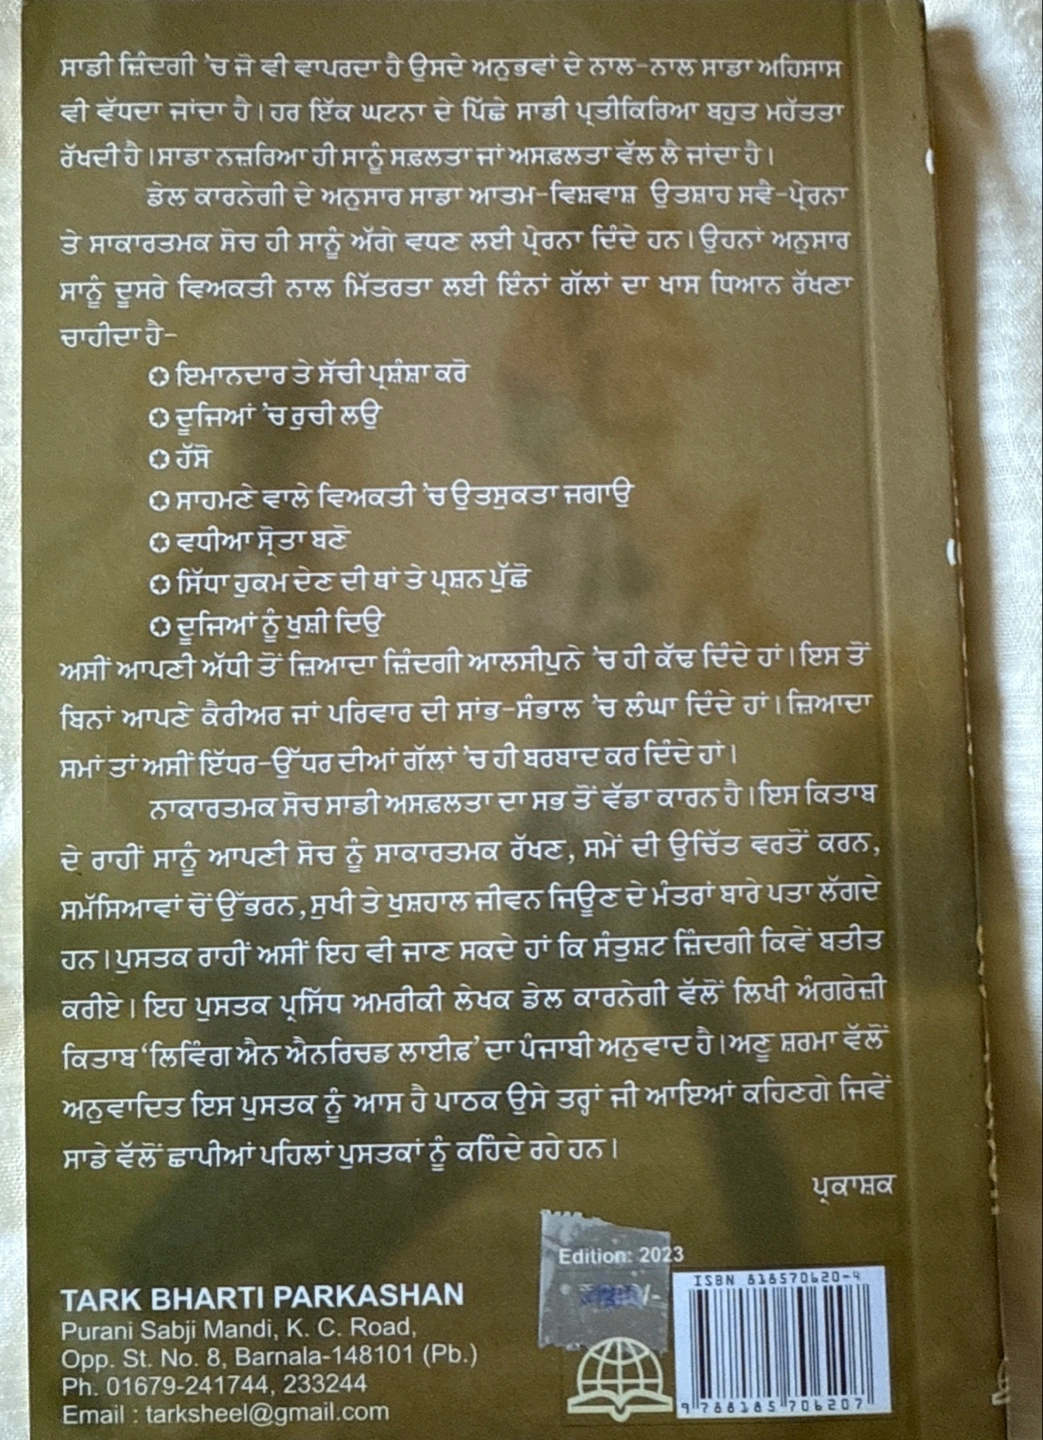 ਸਾਡੀ ਜ਼ਿੰਦਗੀ 'ਚ ਜੋ ਵੀ ਵਾਪਰਦਾ ਹੈ ਉਸਦੇ ਅਨੁਭਵਾਂ ਦੇ ਨਾਲ-ਨਾਲ ਸਾਡਾ ਅਹਿਸਾਸ
ਵੀ ਵੱਧਦਾ ਜਾਂਦਾ ਹੈ। ਹਰ ਇੱਕ ਘਟਨਾ ਦੇ ਪਿੱਛੇ ਸਾਡੀ ਪ੍ਰਤੀਕਿਰਿਆ ਬਹੁਤ ਮਹੱਤਤਾ
ਰੱਖਦੀ ਹੈ। ਸਾਡਾ ਨਜ਼ਰਿਆ ਹੀ ਸਾਨੂੰ ਸਫ਼ਲਤਾ ਜਾਂ ਅਸਫ਼ਲਤਾ ਵੱਲ ਲੈ ਜਾਂਦਾ ਹੈ।
ਡੇਲ ਕਾਰਨੇਗੀ ਦੇ ਅਨੁਸਾਰ ਸਾਡਾ ਆਤਮ-ਵਿਸ਼ਵਾਸ਼ ਉਤਸ਼ਾਹ ਸਵੈ-ਪ੍ਰੇਰਨਾ
ਤੇ ਸਾਕਾਰਤਮਕ ਸੋਚ ਹੀ ਸਾਨੂੰ ਅੱਗੇ ਵਧਣ ਲਈ ਪ੍ਰੇਰਨਾ ਦਿੰਦੇ ਹਨ। ਉਹਨਾਂ ਅਨੁਸਾਰ
ਸਾਨੂੰ ਦੂਸਰੇ ਵਿਅਕਤੀ ਨਾਲ ਮਿੱਤਰਤਾ ਲਈ ਇੰਨਾਂ ਗੱਲਾਂ ਦਾ ਖਾਸ ਧਿਆਨ ਰੱਖਣਾ
ਚਾਹੀਦਾ ਹੈ-
✪ ਇਮਾਨਦਾਰ ਤੇ ਸੱਚੀ ਪ੍ਰਸ਼ੰਸ਼ਾ ਕਰੋ
✪ ਦੂਜਿਆਂ 'ਚ ਰੁਚੀ ਲਉ
✪ ਹੱਸੋ
✪ ਸਾਹਮਣੇ ਵਾਲੇ ਵਿਅਕਤੀ 'ਚ ਉਤਸੁਕਤਾ ਜਗਾਉ
✪ ਵਧੀਆ ਸ੍ਰੋਤਾ ਬਣੋ
✪ ਸਿੱਧਾ ਹੁਕਮ ਦੇਣ ਦੀ ਥਾਂ ਤੇ ਪ੍ਰਸ਼ਨ ਪੁੱਛੋ
✪ ਦੂਜਿਆਂ ਨੂੰ ਖੁਸ਼ੀ ਦਿਉ
ਅਸੀਂ ਆਪਣੀ ਅੱਧੀ ਤੋਂ ਜ਼ਿਆਦਾ ਜ਼ਿੰਦਗੀ ਆਲਸੀਪੁਨੇ 'ਚ ਹੀ ਕੱਢ ਦਿੰਦੇ ਹਾਂ। ਇਸ ਤੋਂ
ਬਿਨਾਂ ਆਪਣੇ ਕੈਰੀਅਰ ਜਾਂ ਪਰਿਵਾਰ ਦੀ ਸਾਂਭ-ਸੰਭਾਲ 'ਚ ਲੰਘਾ ਦਿੰਦੇ ਹਾਂ। ਜ਼ਿਆਦਾ
ਸਮਾਂ ਤਾਂ ਅਸੀਂ ਇੱਧਰ-ਉੱਧਰ ਦੀਆਂ ਗੱਲਾਂ 'ਚ ਹੀ ਬਰਬਾਦ ਕਰ ਦਿੰਦੇ ਹਾਂ।
ਨਾਕਾਰਤਮਕ ਸੋਚ ਸਾਡੀ ਅਸਫ਼ਲਤਾ ਦਾ ਸਭ ਤੋਂ ਵੱਡਾ ਕਾਰਨ ਹੈ। ਇਸ ਕਿਤਾਬ
ਦੇ ਰਾਹੀਂ ਸਾਨੂੰ ਆਪਣੀ ਸੋਚ ਨੂੰ ਸਾਕਾਰਤਮਕ ਰੱਖਣ, ਸਮੇਂ ਦੀ ਉਚਿੱਤ ਵਰਤੋਂ ਕਰਨ,
ਸਮੱਸਿਆਵਾਂ ਚੋਂ ਉੱਭਰਨ, ਸੁਖੀ ਤੇ ਖੁਸ਼ਹਾਲ ਜੀਵਨ ਜਿਊਣ ਦੇ ਮੰਤਰਾਂ ਬਾਰੇ ਪਤਾ ਲੱਗਦੇ
ਹਨ। ਪੁਸਤਕ ਰਾਹੀਂ ਅਸੀਂ ਇਹ ਵੀ ਜਾਣ ਸਕਦੇ ਹਾਂ ਕਿ ਸੰਤੁਸ਼ਟ ਜ਼ਿੰਦਗੀ ਕਿਵੇਂ ਬਤੀਤ
ਕਰੀਏ। ਇਹ ਪੁਸਤਕ ਪ੍ਰਸਿੱਧ ਅਮਰੀਕੀ ਲੇਖਕ ਡੇਲ ਕਾਰਨੇਗੀ ਵੱਲੋਂ ਲਿਖੀ ਅੰਗਰੇਜ਼ੀ
ਕਿਤਾਬ 'ਲਿਵਿੰਗ ਐਨ ਐਨਰਿਚਡ ਲਾਈਫ਼' ਦਾ ਪੰਜਾਬੀ ਅਨੁਵਾਦ ਹੈ। ਅਣੂ ਸ਼ਰਮਾ ਵੱਲੋਂ
ਅਨੁਵਾਦਿਤ ਇਸ ਪੁਸਤਕ ਨੂੰ ਆਸ ਹੈ ਪਾਠਕ ਉਸੇ ਤਰ੍ਹਾਂ ਜੀ ਆਇਆਂ ਕਹਿਣਗੇ ਜਿਵੇਂ
ਸਾਡੇ ਵੱਲੋਂ ਛਾਪੀਆਂ ਪਹਿਲਾਂ ਪੁਸਤਕਾਂ ਨੂੰ ਕਹਿੰਦੇ ਰਹੇ ਹਨ।
ਪ੍ਰਕਾਸ਼ਕ
Edition: 2023
ISBN 818570620-4
TARK BHARTI PARKASHAN
Purani Sabji Mandi, K. C. Road,
Opp. St. No. 8, Barnala-148101 (Pb.)
Ph. 01679-241744, 233244
Email : tarksheel@gmail.com
9 788185 706207